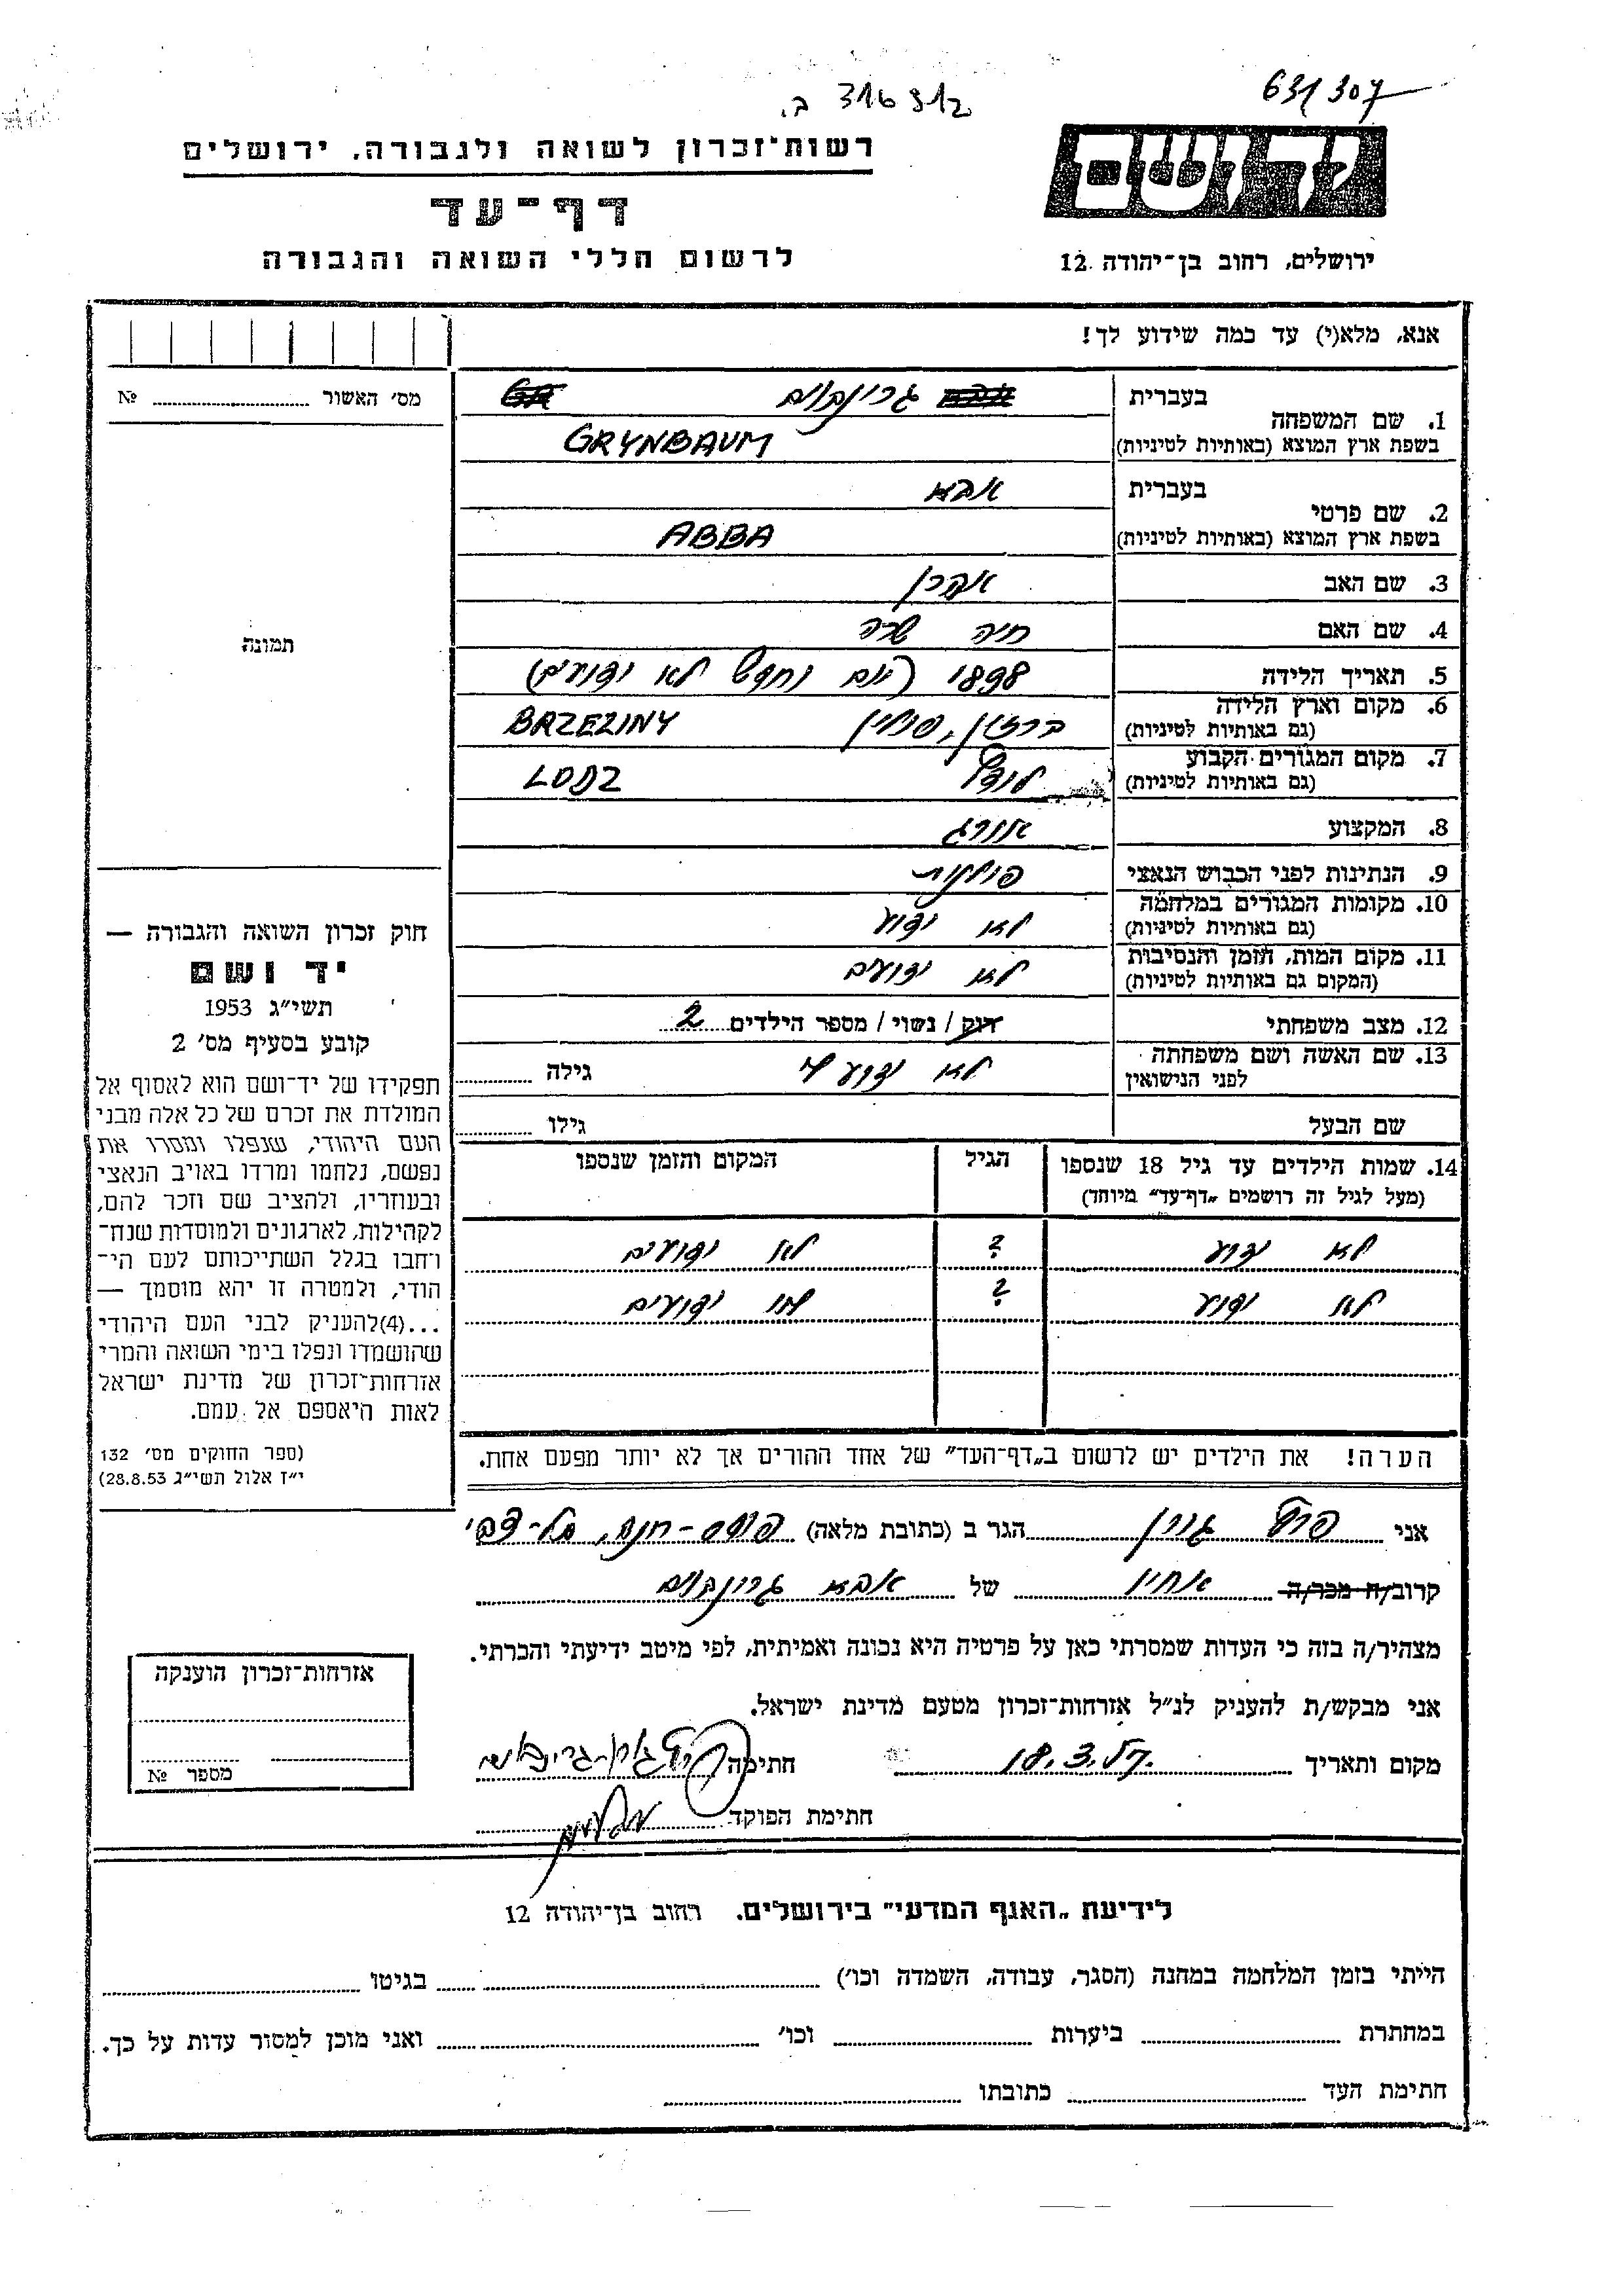 631/307
316912 ב.
יד ושם
רשות־זכרון לשואה ולגבורה, ירושלים
דף־עד
לרשום חללי השואה והגבורה
ירושלים, רחוב בן־יהודה 12
אנא, מלא(י) עד כמה שידוע לך!
מס׳ האשור № 
1. שם המשפחה בעברית גרינבוים
בשפת ארץ המוצא (באותיות לטיניות) GRYNBAUM
2. שם פרטי בעברית אבא
בשפת ארץ המוצא (באותיות לטיניות) ABBA
3. שם האב אהרן
4. שם האם חיה שרה
5. תאריך הלידה 1898 (יום וחדש לא ידועים)
6. מקום וארץ הלידה (גם באותיות לטיניות) ברזין, פולין BRZEZINY
7. מקום המגורים הקבוע (גם באותיות לטיניות) לודז׳ LODZ
8. המקצוע אורג
9. הנתינות לפני הכבוש הנאצי פולנית
10. מקומות המגורים במלחמה (גם באותיות לטיניות) לא ידוע
11. מקום המות, הזמן והנסיבות (המקום גם באותיות לטיניות) לא ידועים
12. מצב משפחתי רוק / נשוי / מספר הילדים 2
13. שם האשה ושם משפחתה לפני הנישואין לא ידוע גילה
שם הבעל גילו
14. שמות הילדים עד גיל 18 שנספו הגיל המקום והזמן שנספו
(מעל לגיל זה רושמים „דף־עד״ מיוחד)
לא ידוע ? לא ידועים
לא ידוע ? לא ידועים
הערה! את הילדים יש לרשום ב„דף־העד״ של אחד ההורים אך לא יותר מפעם אחת.
תמונה
חוק זכרון השואה והגבורה —
יד ושם
תשי״ג 1953
קובע בסעיף מס׳ 2
תפקידו של יד־ושם הוא לאסוף אל
המולדת את זכרם של כל אלה מבני
העם היהודי, שנפלו ומסרו את
נפשם, נלחמו ומרדו באויב הנאצי
ובעוזריו, ולהציב שם וזכר להם,
לקהילות, לארגונים ולמוסדות שנח־
רחבו בגלל השתייכותם לעם הי־
הודי, ולמטרה זו יהא מוסמך —
...(4)להעניק לבני העם היהודי
שהושמדו ונפלו בימי השואה והמרי
אזרחות־זכרון של מדינת ישראל
לאות היאספם אל עמם.
(ספר החוקים מס׳ 132
י״ז אלול תשי״ג 28.8.53)
אני גורין הגר ב (כתובת מלאה) פרדס-חנה, תל-צבי
קרוב/ה מכר/ה אחיו של אבא גרינבוים
מצהיר/ה בזה כי העדות שמסרתי כאן על פרטיה היא נכונה ואמיתית, לפי מיטב ידיעתי והכרתי.
אני מבקש/ת להעניק לנ״ל אזרחות־זכרון מטעם מדינת ישראל.
מקום ותאריך 18.3.57. חתימה
חתימת הפוקד
אזרחות־זכרון הוענקה
מספר №
לידיעת „האגף המדעי״ בירושלים. רחוב בן־יהודה 12
הייתי בזמן המלחמה במחנה (הסגר, עבודה, השמדה וכו׳) בגיטו
במחתרת ביערות וכו׳ ואני מוכן למסור עדות על כך.
חתימת העד כתובתו